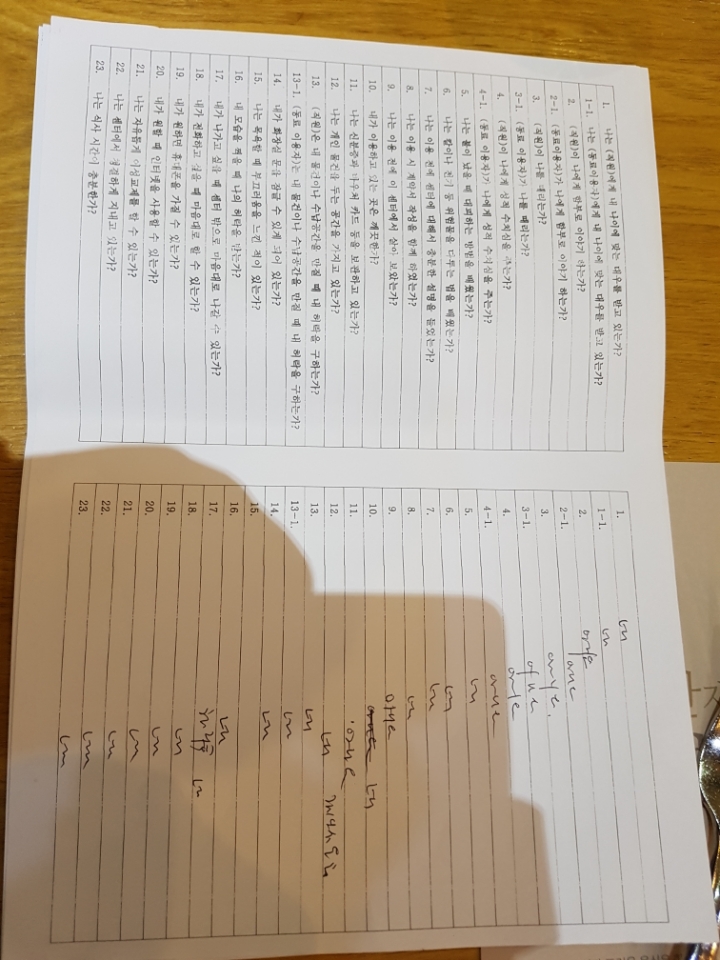 1. 나는 (직원)에게 내 나이에 맞는 대우를 받고 있는가?
1-1. 나는 (동료이용자)에게 내 나이에 맞는 대우를 받고 있는가?
2. (직원)이 나에게 함부로 이야기 하는가?
2-1. (동료이용자)가 나에게 함부로 이야기 하는가?
3. (직원)이 나를 때리는가?
3-1. (동료 이용자)가 나를 때리는가?
4. (직원)이 나에게 성적 수치심을 주는가?
4-1. (동료 이용자)가 나에게 성적 수치심을 주는가?
5. 나는 불이 났을 때 대피하는 방법을 배웠는가?
6. 나는 칼이나 전기 등 위험물을 다루는 법을 배웠는가?
7. 나는 이용 전에 센터에 대해서 충분한 설명을 들었는가?
8. 나는 이용 시 계약서 작성을 함께 하였는가?
9. 나는 이용 전에 이 센터에서 살아 보았는가?
10. 내가 이용하고 있는 곳은 깨끗한가?
11. 나는 신분증과 바우처 카드 등을 보관하고 있는가?
12. 나는 개인 물건을 두는 공간을 가지고 있는가?
13. (직원)은 내 물건이나 수납공간을 만질 때 내 허락을 구하는가?
13-1. (동료 이용자)는 내 물건이나 수납공간을 만질 때 내 허락을 구하는가?
14. 내가 화장실 문을 잠글 수 있게 되어 있는가?
15. 나는 목욕할 때 부끄러움을 느낀 적이 있는가?
16. 내 모습을 찍을 때 나의 허락을 받는가?
17. 내가 나가고 싶을 때 센터 밖으로 마음대로 나갈 수 있는가?
18. 내가 전화하고 싶을 때 마음대로 할 수 있는가?
19. 내가 원하면 휴대폰을 가질 수 있는가?
20. 내가 원할 때 인터넷을 사용할 수 있는가?
21. 나는 자유롭게 이성교제를 할 수 있는가?
22. 나는 센터에서 청결하게 지내고 있는가?
23. 나는 식사 시간이 충분한가?
1. 네
1-1. 네
2. 아니요
2-1. 아니오
3. 아니요.
3-1. 아니
4. 아니요
4-1. 아니요
5. 네
6. 네
7. 네
8. 네
9. 아니요
10. 네
11. 아니요
12. 네
13. 네
13-1. 네
14. 네
15.
16. 네
17. 네
18. 네
19. 네
20. 네
21. 네
22. 네
23. 네